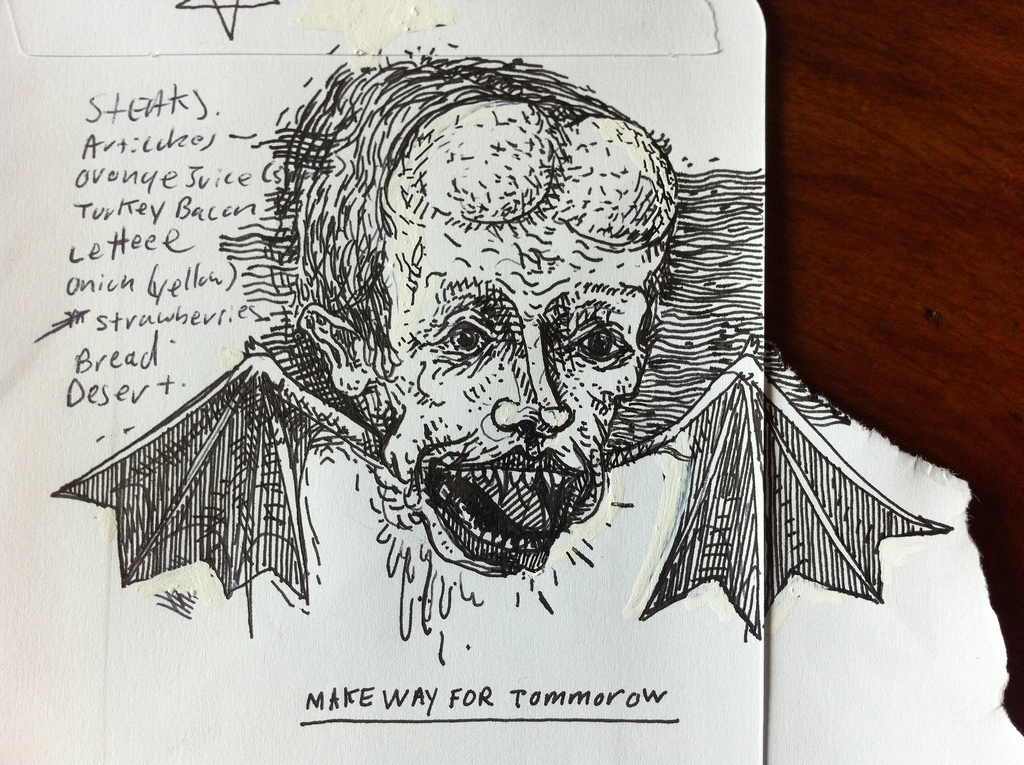 STEAKS.
Articokes -
orange Juice (s)
Turkey Bacon
Letteee
onion (yellow)
* strawberries
Bread.
Desert.
MAKE WAY FOR Tommorow